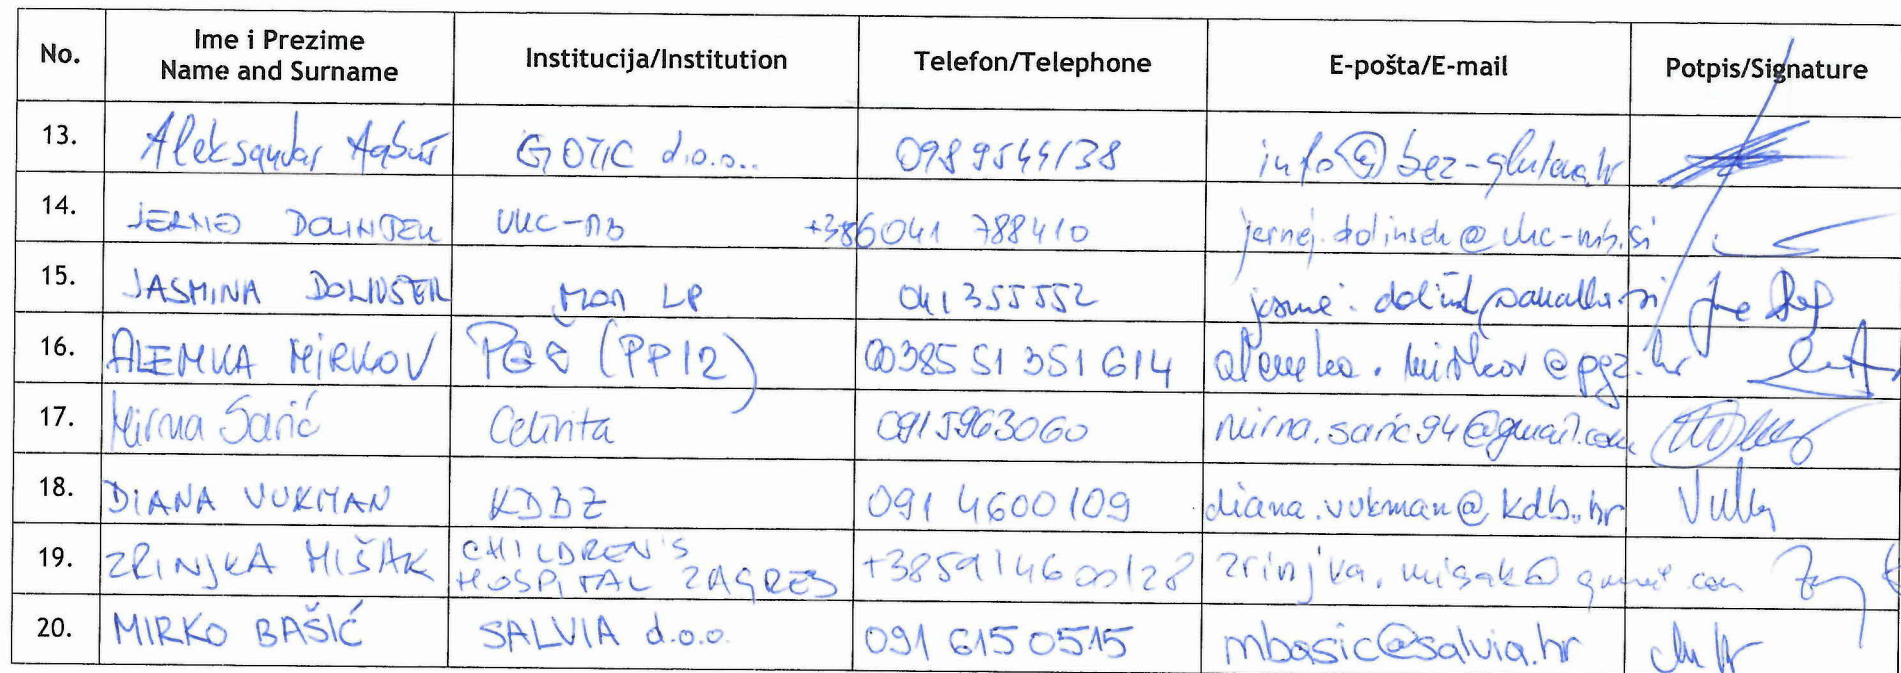 No. Ime i Prezime Institucija/Institution Telefon/Telephone E-pošta/E-mail Potpis/Signature
Name and Surname
13. Aleksandar GOTIC d.o.o. 0989544138 info@bez-glutena.hr
14. JERNEJ DOLINŠEK UKC-MB +386041 788410 jernej.dolinsek@ukc-mb.si
15. JASMINA DOLINŠEK LP 041 355552
16. ALEMKA MIRKOV (PP12) 00385 51 351 614 alemka.mirkov@pgz.hr
17. Mirna Sarić Celivita 0915963060 mirna.saric94@gmail.com
18. DIANA VUKMAN KDBZ 091 4600109 diana.vukman@kdb.hr
19. ZRINJKA MIŠAK CHILDREN'S
HOSPITAL ZAGREB +385914600128 zrinjka.misak@gmail.com
20. MIRKO BAŠIĆ SALVIA d.o.o. 091 6150515 mbasic@salvia.hr